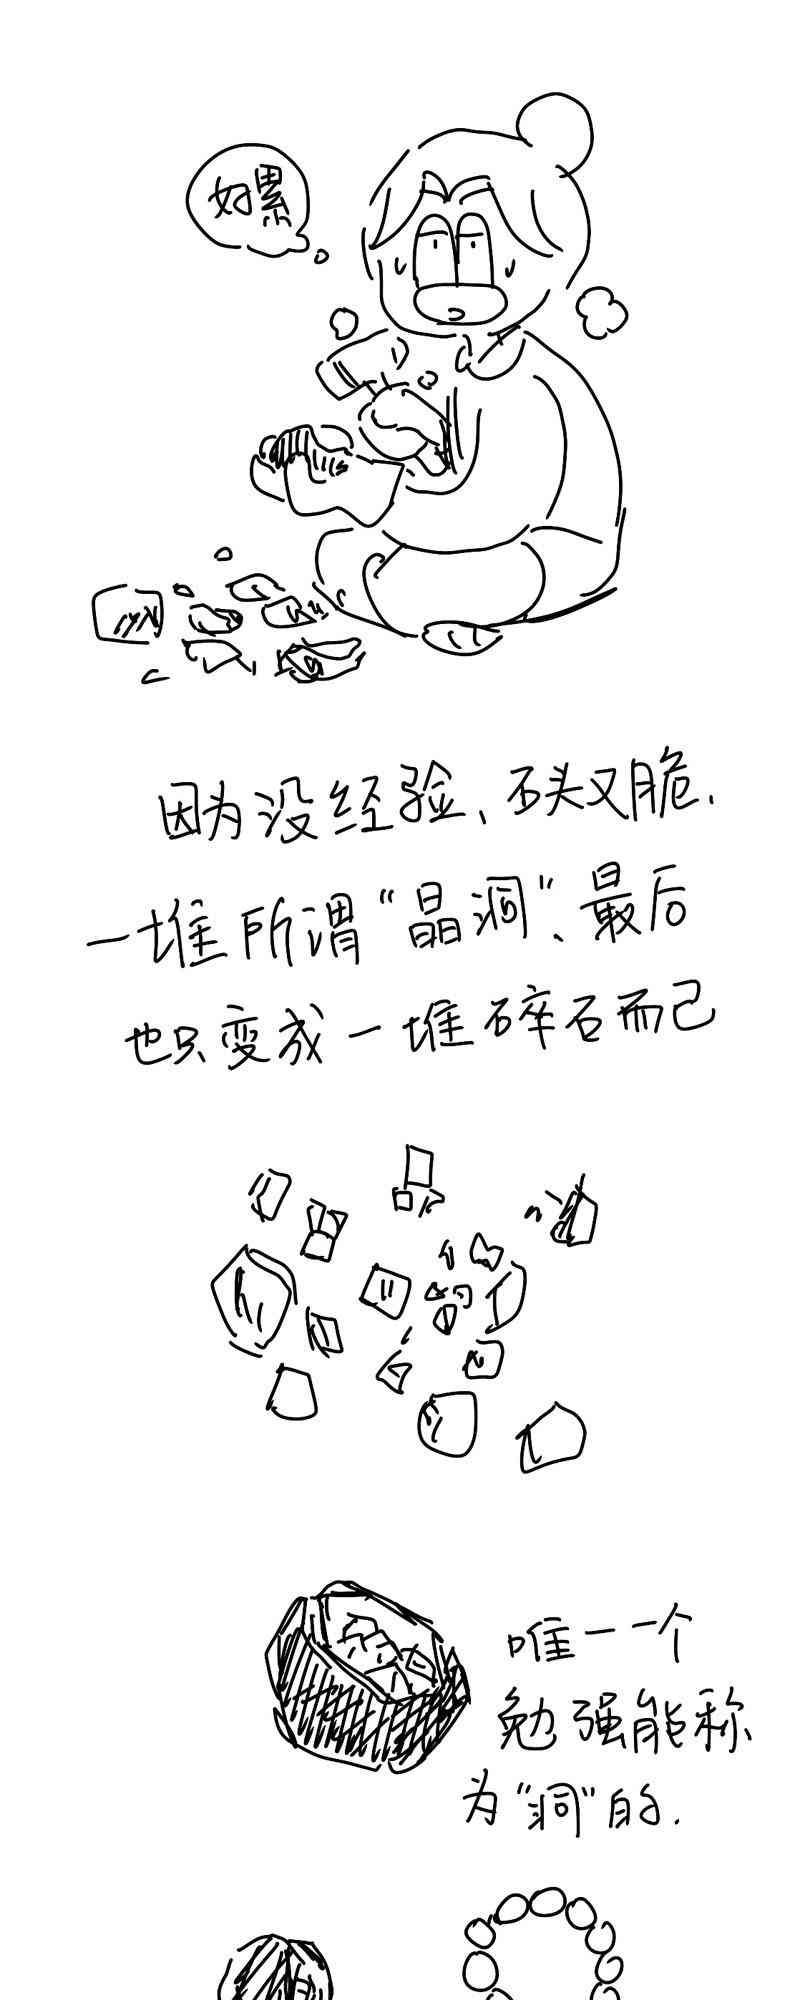 好累
因为没经验、石头又脆、
一堆所谓“晶洞”、最后
也只变成一堆碎石而已
唯一一个
勉强能称
为“洞”的.